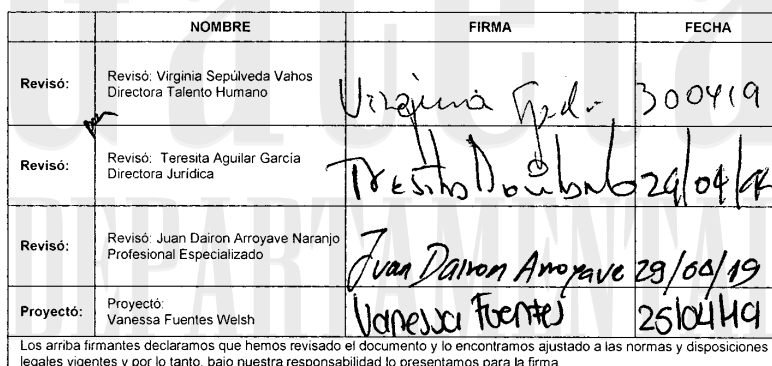 NOMBRE FIRMA FECHA
Revisó: Revisó: Virginia Sepúlveda Vahos
Directora Talento Humano
Virginia 300419
Revisó: Revisó: Teresita Aguilar García
Directora Jurídica
29/04/
Revisó: Revisó: Juan Dairon Arroyave Naranjo
Profesional Especializado
Juan Dairon Arroyave 29/04/19
Proyectó: Proyectó:
Vanessa Fuentes Welsh
Vanessa Fuentes 25/04/19
Los arriba firmantes declaramos que hemos revisado el documento y lo encontramos ajustado a las normas y disposiciones
legales vigentes y por lo tanto, bajo nuestra responsabilidad lo presentamos para la firma
DEPARTAMENTAL